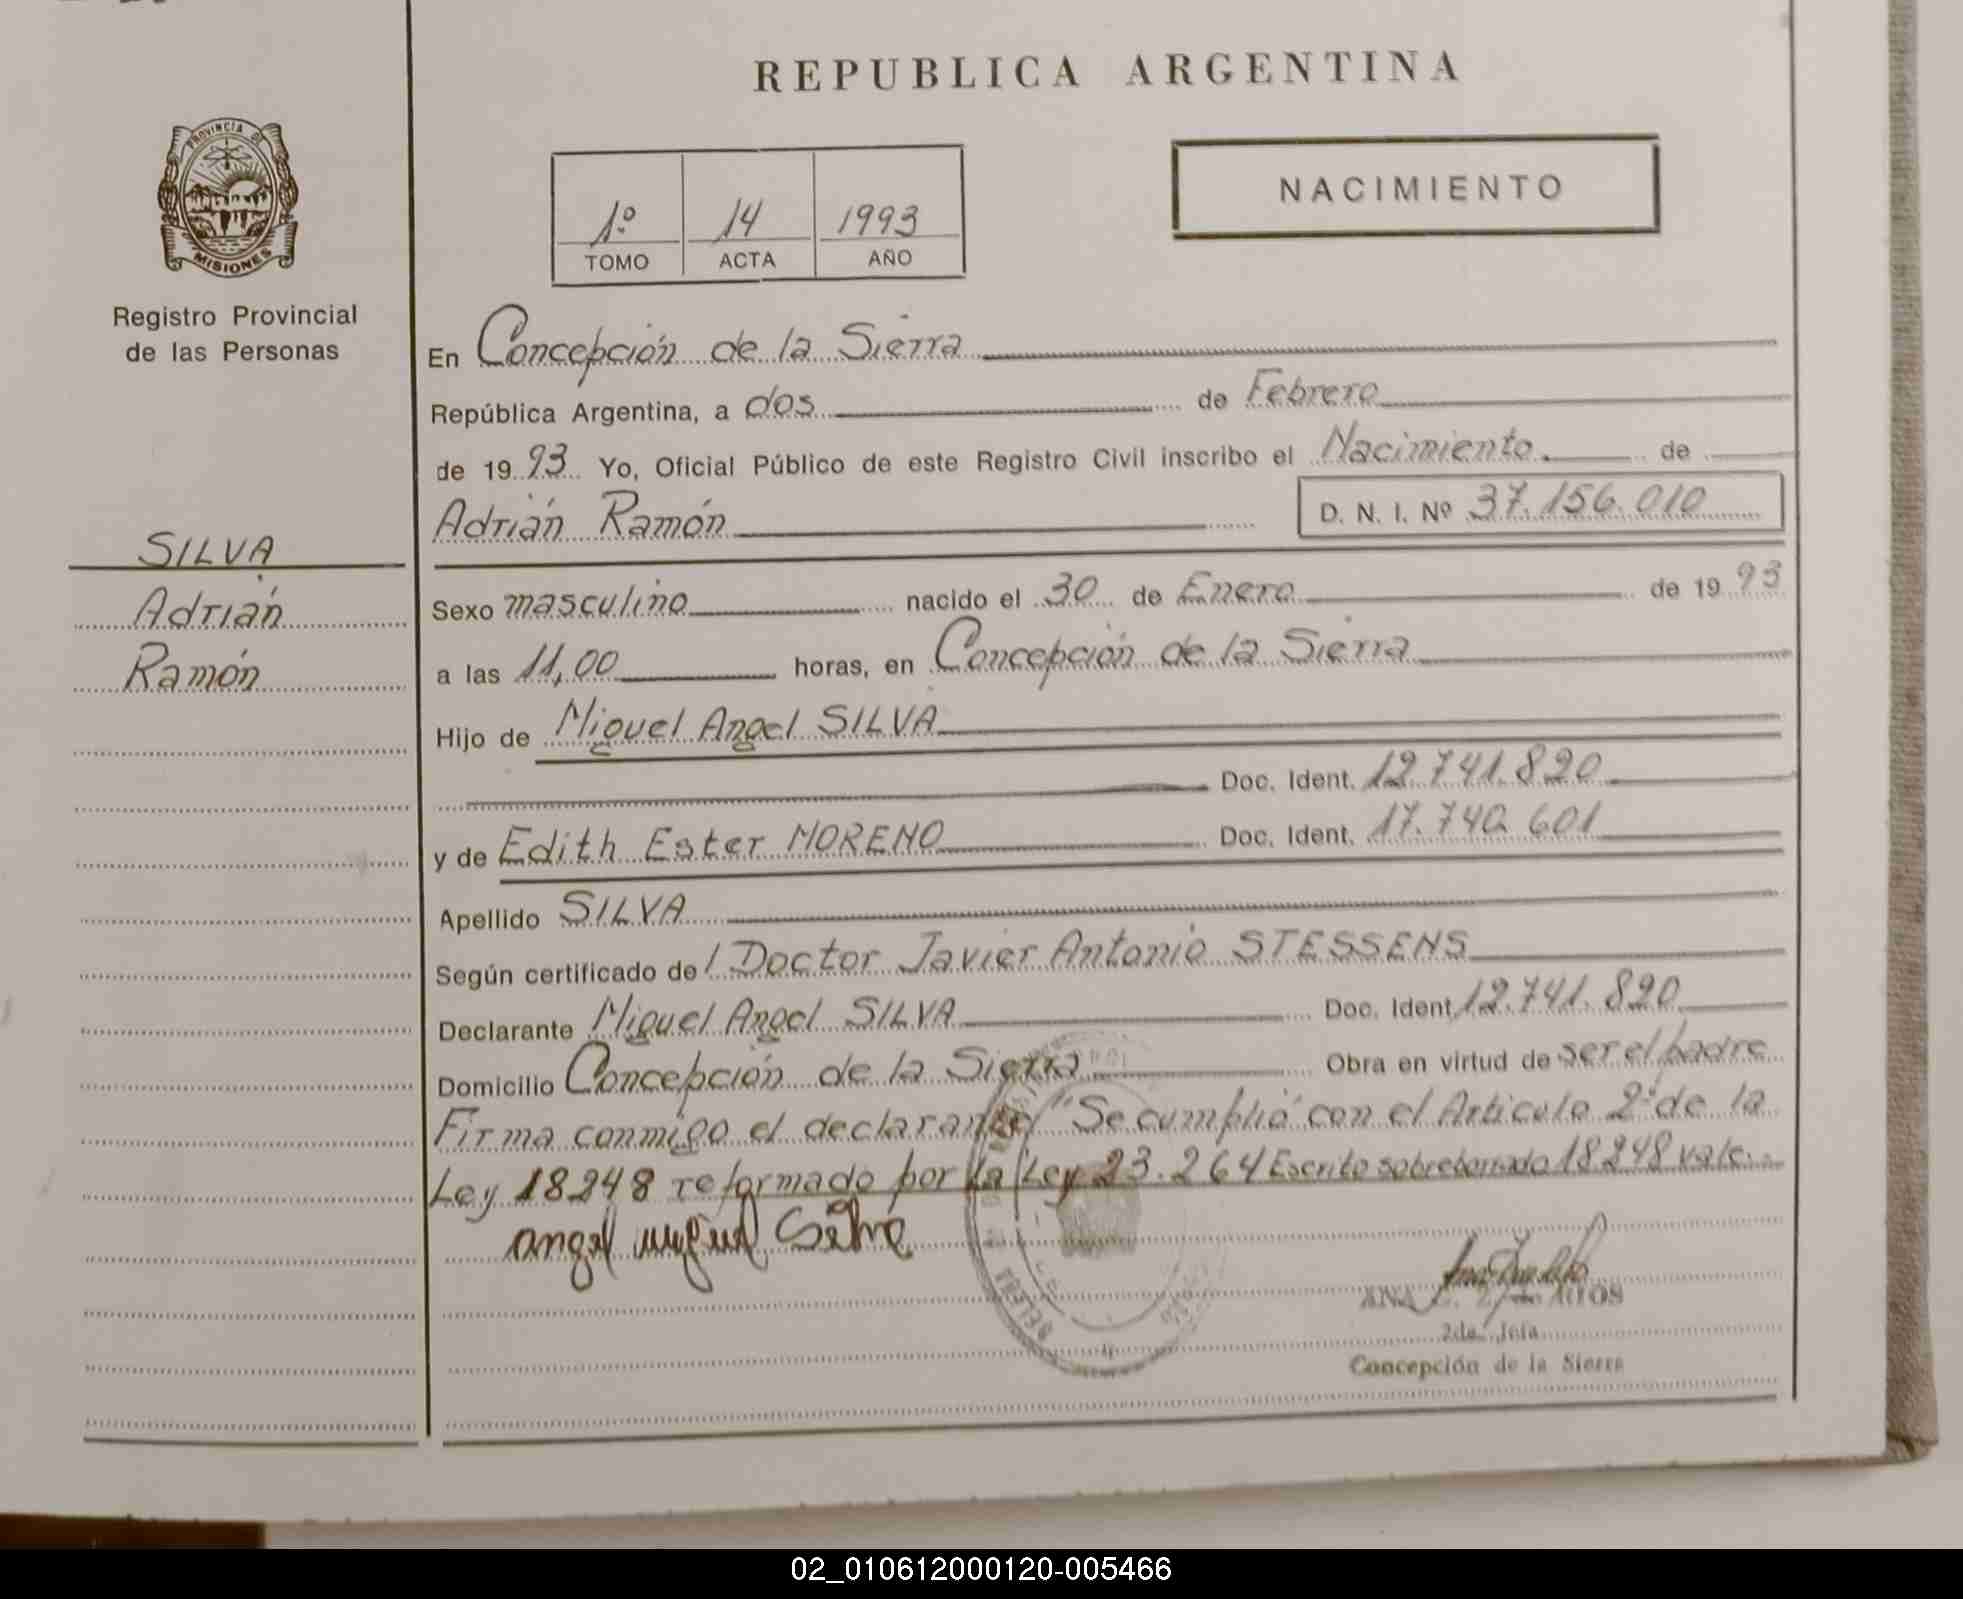 REPUBLICA ARGENTINA
PROVINCIA DE
MISIONES
Registro Provincial
de las Personas
NACIMIENTO
1º 14 1993
TOMO ACTA AÑO
En Concepción de la Sierra
República Argentina, a dos de Febrero
de 19 93 Yo, Oficial Público de este Registro Civil inscribo el Nacimiento de
Adrián Ramón D. N. I. Nº 37.156.010
SILVA
Adrián
Ramón
Sexo masculino nacido el 30 de Enero de 19 93
a las 11,00 horas, en Concepción de la Sierra
Hijo de Miguel Angel SILVA
Doc. Ident. 12.741.820
y de Edith Ester MORENO Doc. Ident. 17.740.601
Apellido SILVA
Según certificado del Doctor Javier Antonio STESSENS
Declarante Miguel Angel SILVA Doc. Ident. 12.741.820
Domicilio Concepción de la Sierra Obra en virtud de ser el padre
Firma conmigo el declarante/ "Se cumplió con el Articulo 2º de la
Ley 18248 reformado por la Ley 23.264 Escrito sobreborrado 18248 vale.
angel miguel Silva
ANA
2da. Jefa
Concepción de la Sierra
02_010612000120-005466